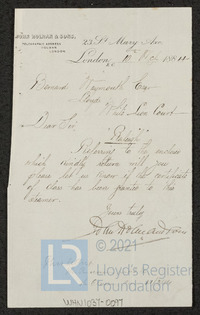 JOHN HOLMAN & SONS,
TELEGRAPHIC ADDRESS
HOLMAN,
LONDON.
23 St Mary Axe
London,
Bernard Waymouth Esqr
Lloyds
White Lion Court
Dear Sir,
Referring to the enclosed
which kindly return will you
please let us know if the certificate
of class has been granted to this
steamer.
Yours truly
John Holman & Sons
© 2021
LR
Lloyd's Register
Foundation
W494/1037-0097